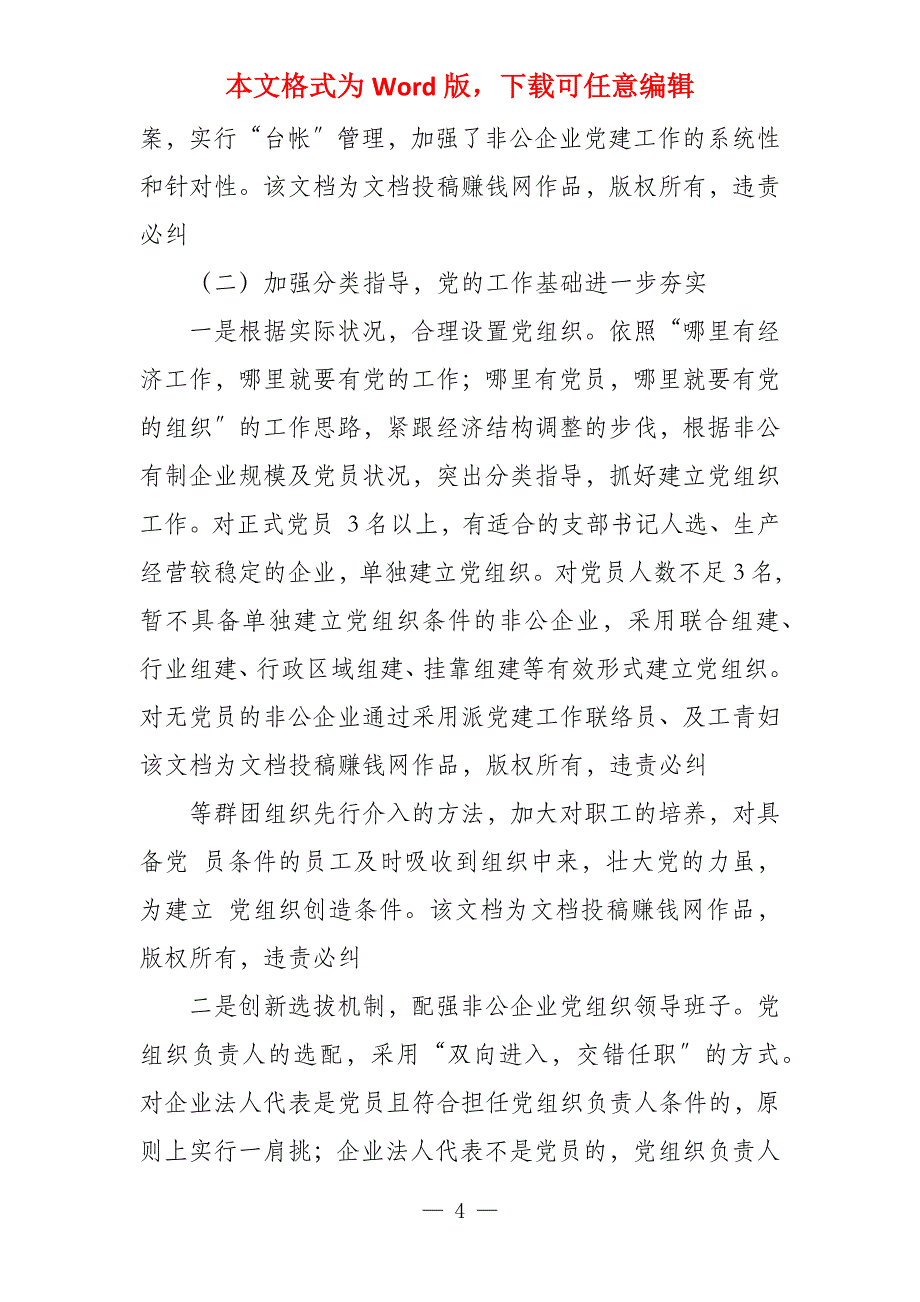 本文格式为 Word 版，下载可任意编辑
案，实行“台帐〞管理，加强了非公企业党建工作的系统性
和针对性。该文档为文档投稿赚钱网作品，版权所有，违责
必纠
（二）加强分类指导，党的工作基础进一步夯实
一是根据实际状况，合理设置党组织。依照“哪里有经
济工作，哪里就要有党的工作；哪里有党员，哪里就要有党
的组织〞的工作思路，紧跟经济结构调整的步伐，根据非公
有制企业规模及党员状况，突出分类指导，抓好建立党组织
工作。对正式党员 3名以上，有适合的支部书记人选、生产
经营较稳定的企业，单独建立党组织。对党员人数不足3名，
暂不具备单独建立党组织条件的非公企业，采用联合组建、
行业组建、行政区域组建、挂靠组建等有效形式建立党组织。
对无党员的非公企业通过采用派党建工作联络员、及工青妇
该文档为文档投稿赚钱网作品，版权所有，违责必纠
等群团组织先行介入的方法，加大对职工的培养，对具
备党 员条件的员工及时吸收到组织中来，壮大党的力虽，
为建立 党组织创造条件。该文档为文档投稿赚钱网作品，
版权所有，违责必纠
二是创新选拔机制，配强非公企业党组织领导班子。党
组织负责人的选配，采用“双向进入，交错任职〞的方式。
对企业法人代表是党员且符合担任党组织负责人条件的，原
则上实行一肩挑；企业法人代表不是党员的，党组织负责人
— 4 —